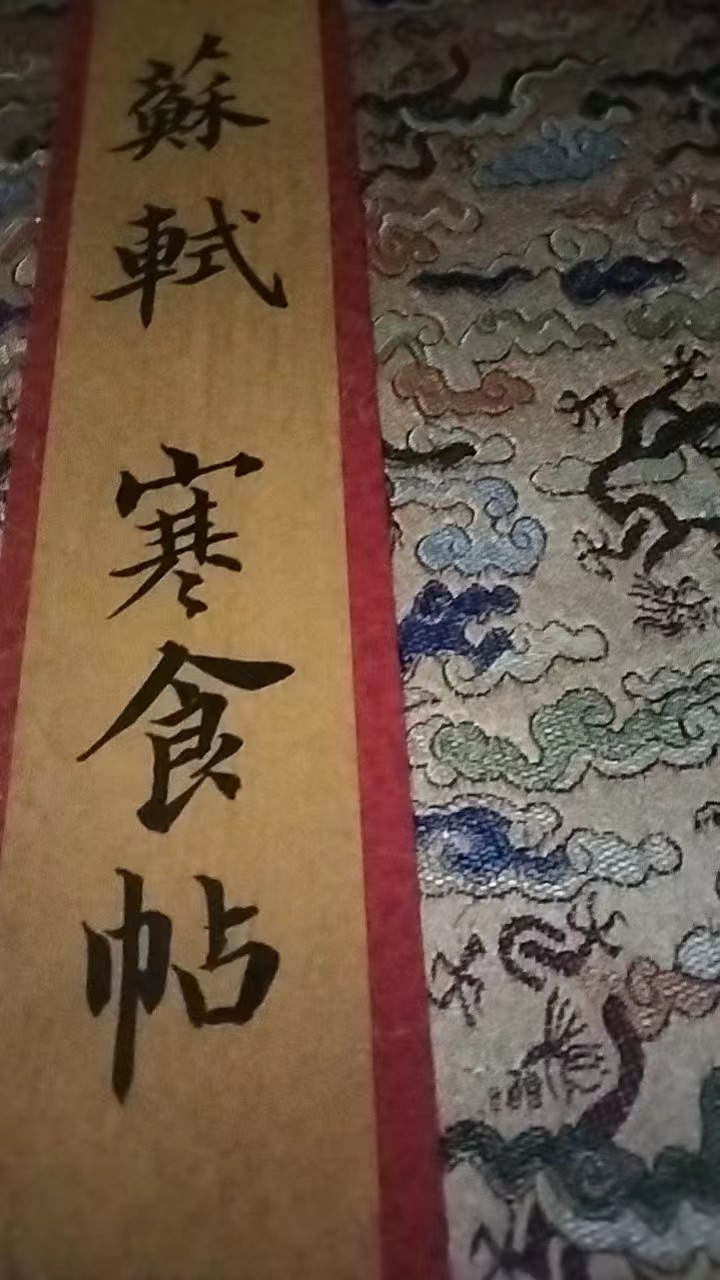 蘇軾 寒食帖